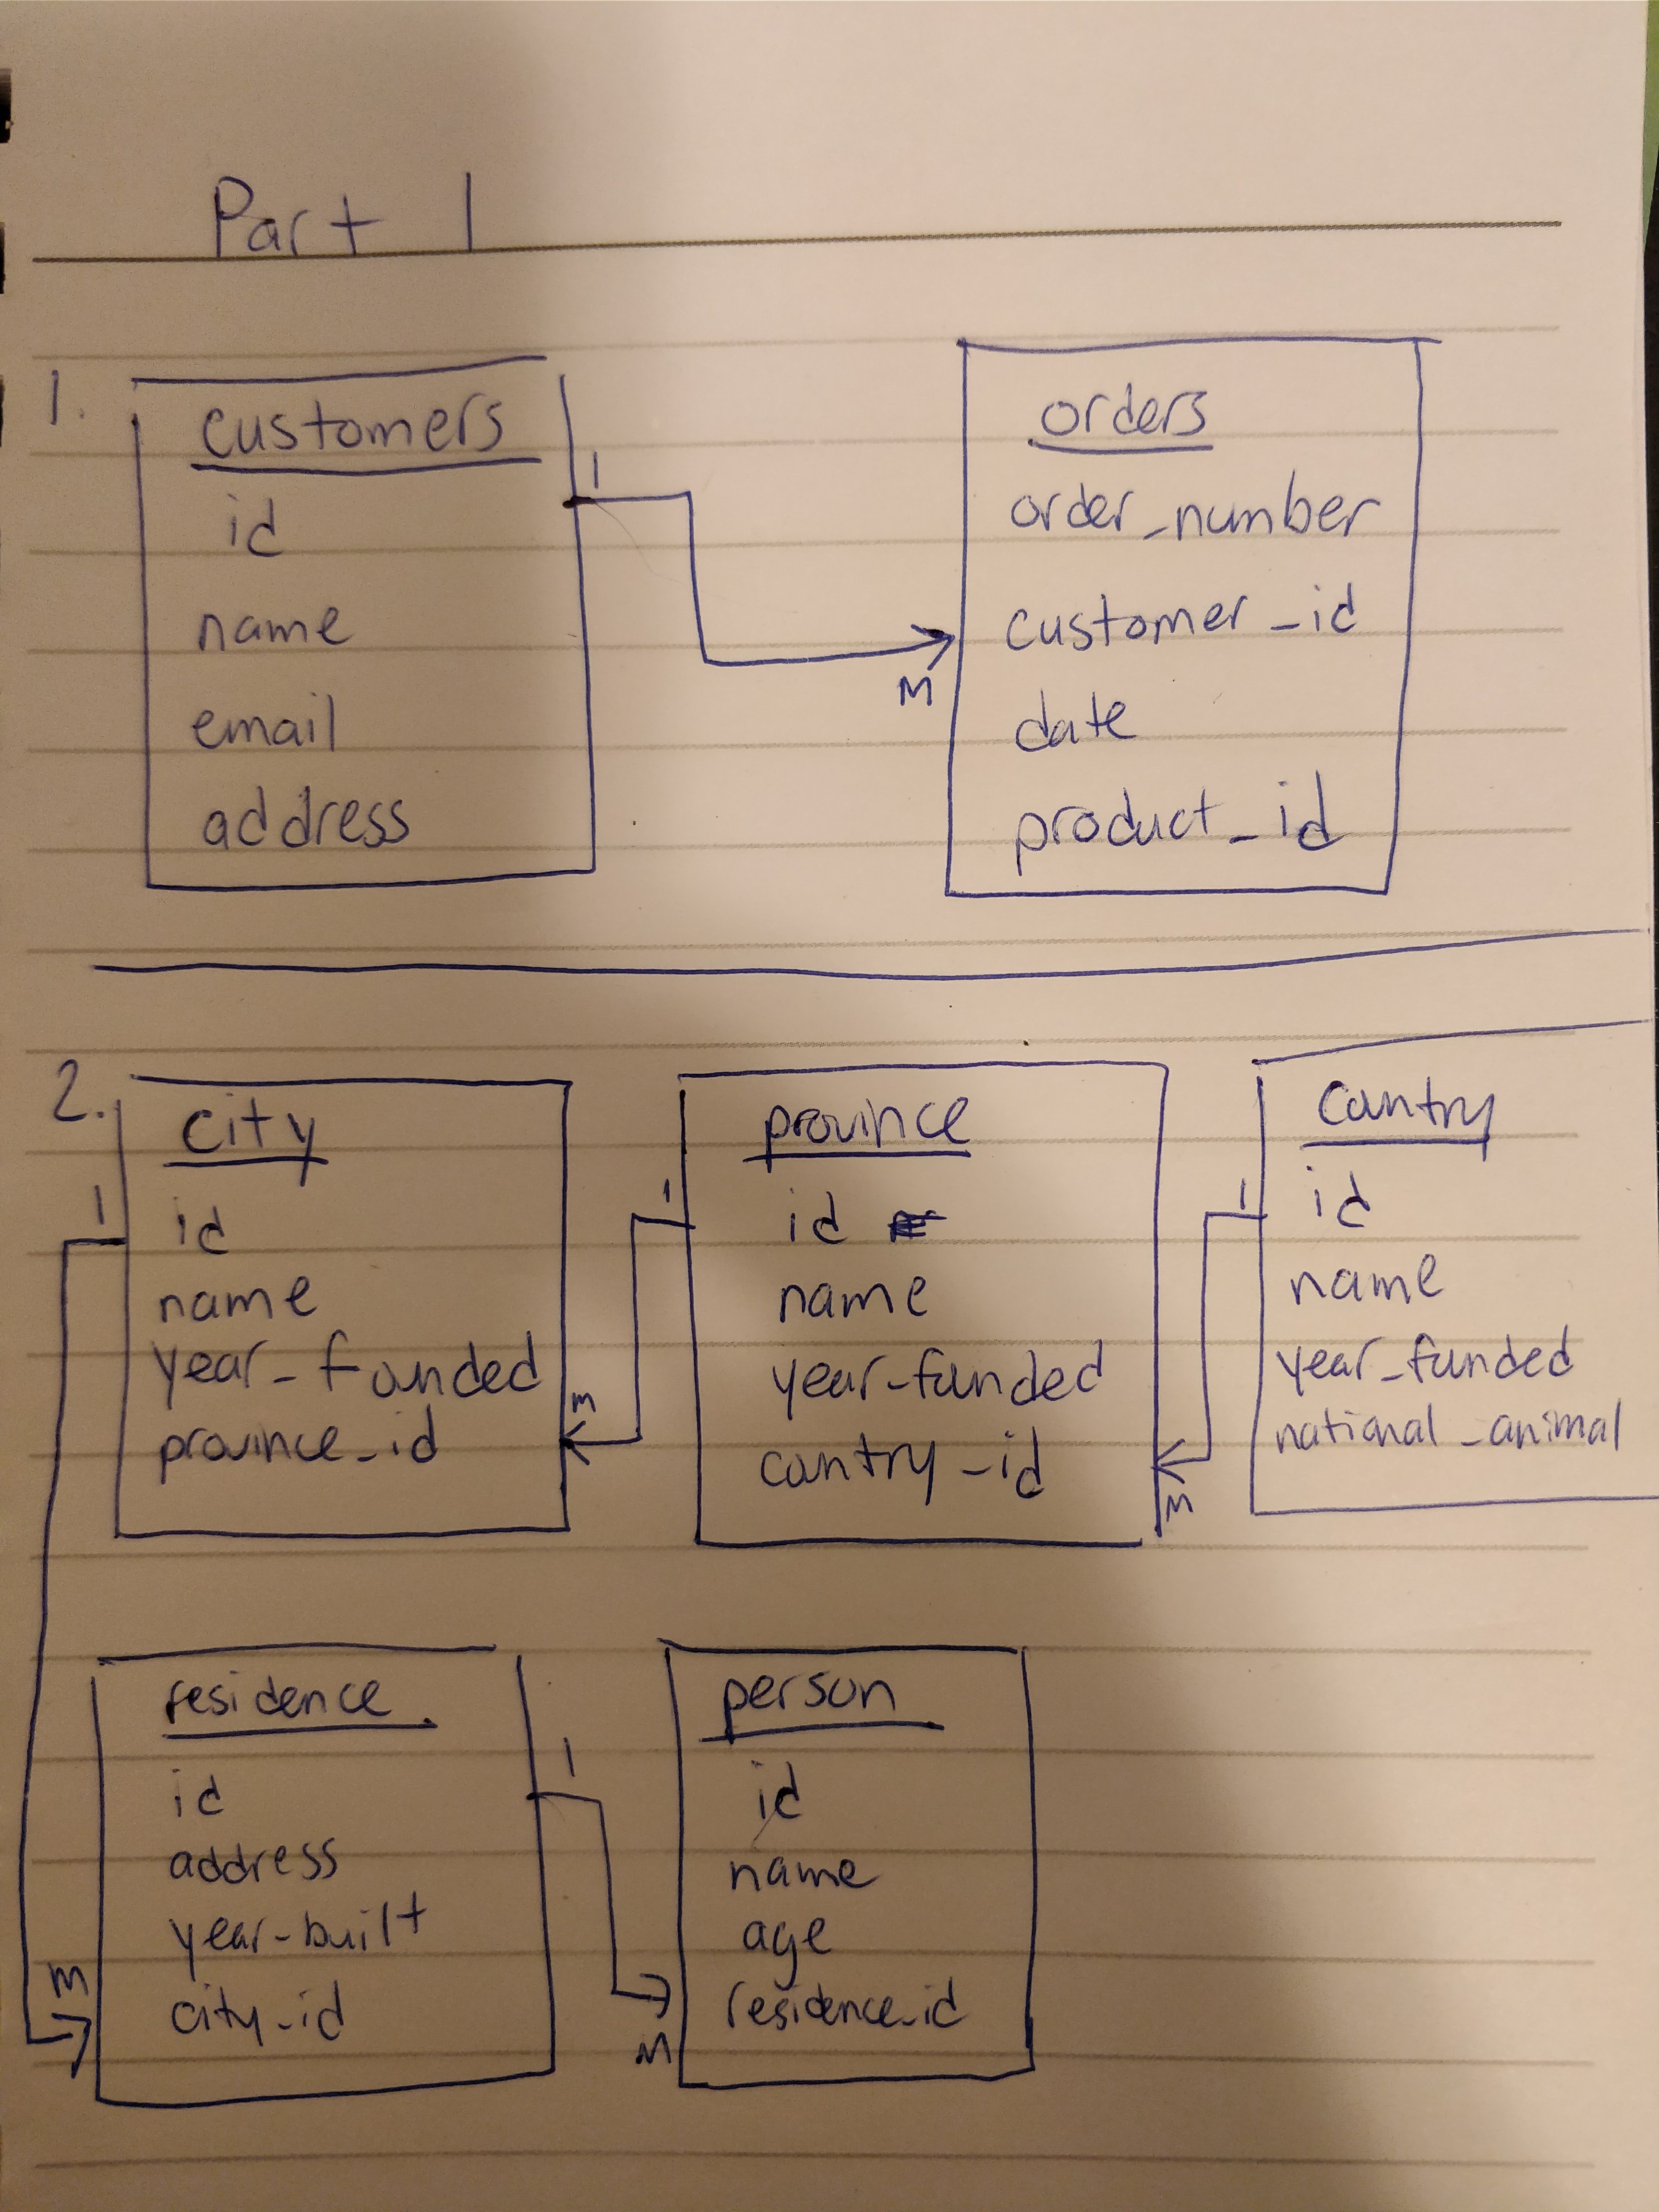 Part 1
1.
customers
id
name
email
address
1
M
orders
order_number
customer_id
date
product_id
2.
city
id
name
year_founded
province_id
1
M
province
id
name
year-founded
country_id
1
M
country
id
name
year_founded
national_animal
1
M
residence
id
address
year-built
city_id
1
M
person
id
name
age
residence_id